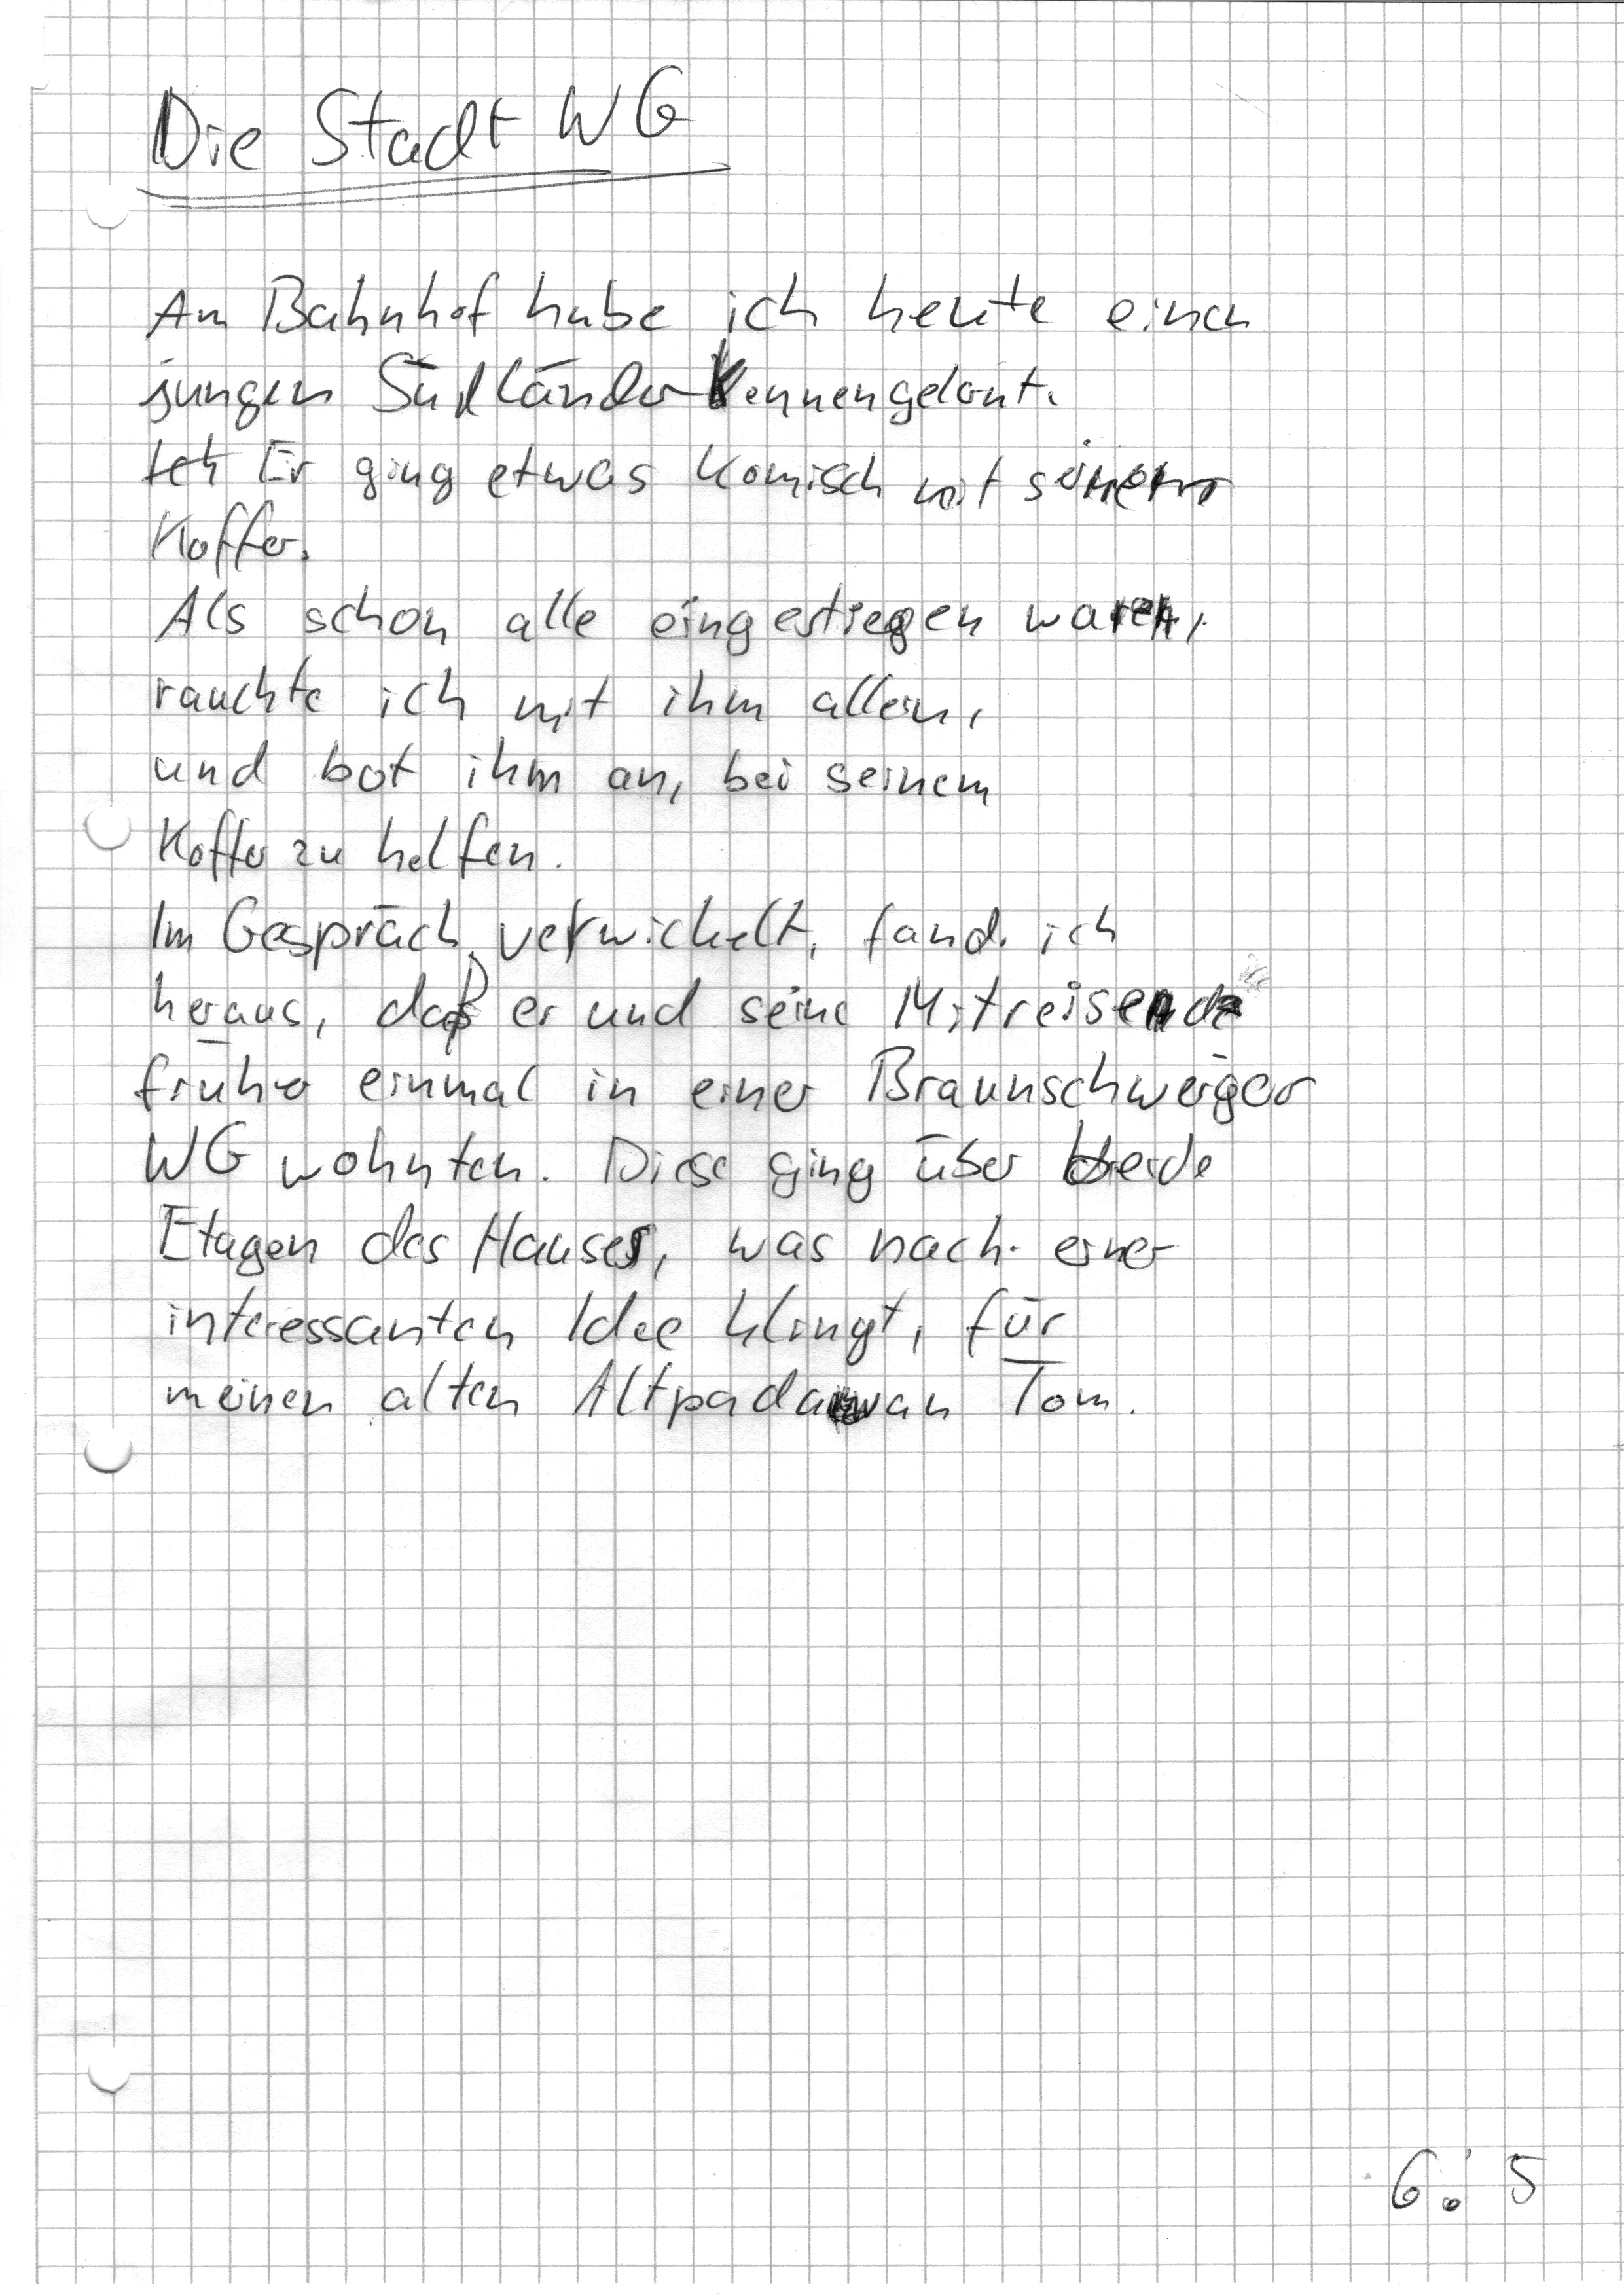 Die Stadt WG
Am Bahnhof habe ich heute einen
jungen Südländer kennengelernt.
Ich Er ging etwas komisch mit seinem
Koffer.
Als schon alle eingestiegen waren,
rauchte ich mit ihm allein,
und bot ihm an, bei seinem
Koffer zu helfen.
Im Gespräch verwickelt, fand ich
heraus, daß er und seine Mitreisende
früher einmal in einer Braunschweiger
WG wohnten. Diese ging über beide
Etagen des Hauses, was nach einer
interessanten Idee klingt, für
meinen alten Altpadawan Tom.
6: 5